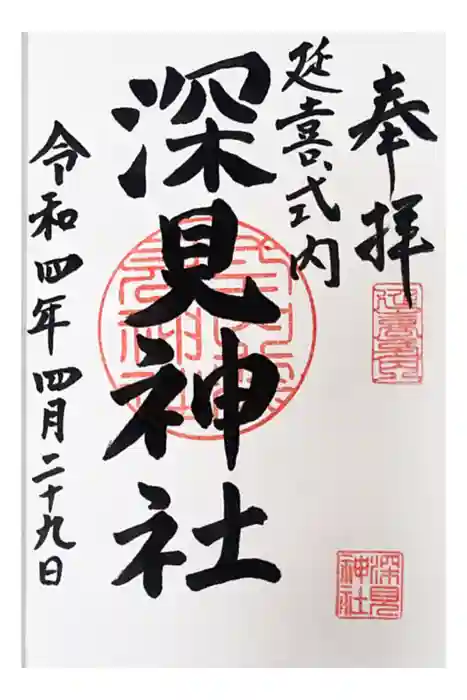 奉拝
延喜式内
深見神社
令和四年四月二十九日
深見
神社